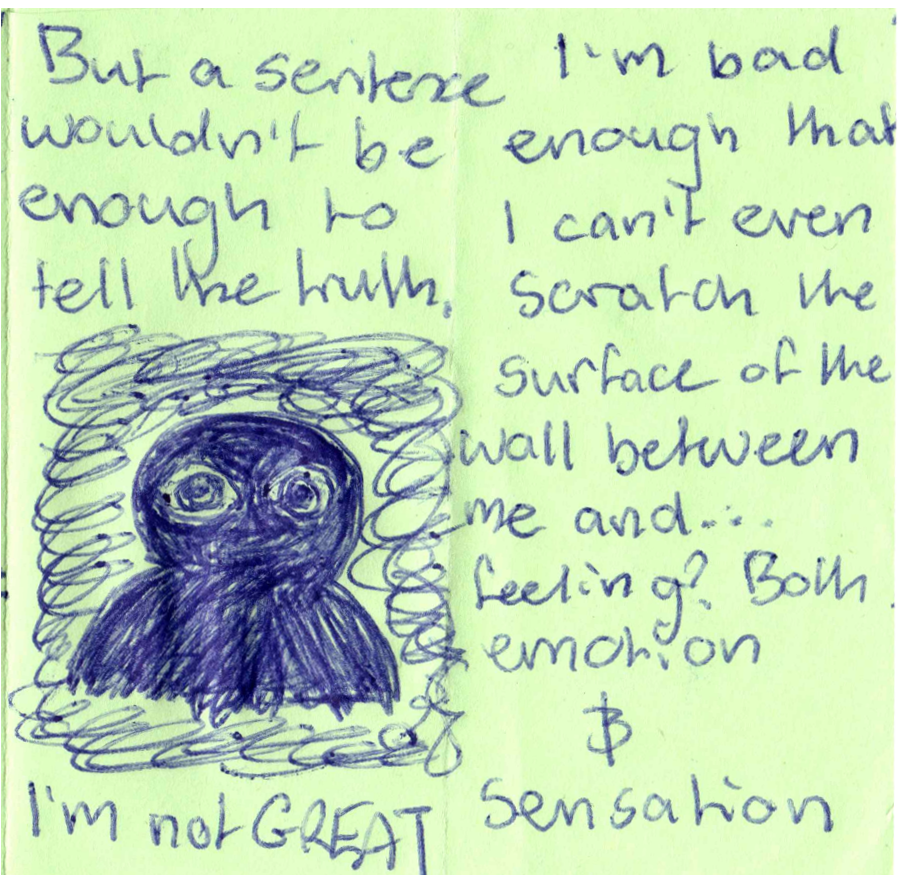 But a sentence
wouldn't be
enough to
tell the truth.
I'm not GREAT
I'm bad
enough that
I can't even
scratch the
surface of the
wall between
me and...
feeling? Both
emotion
&
Sensation